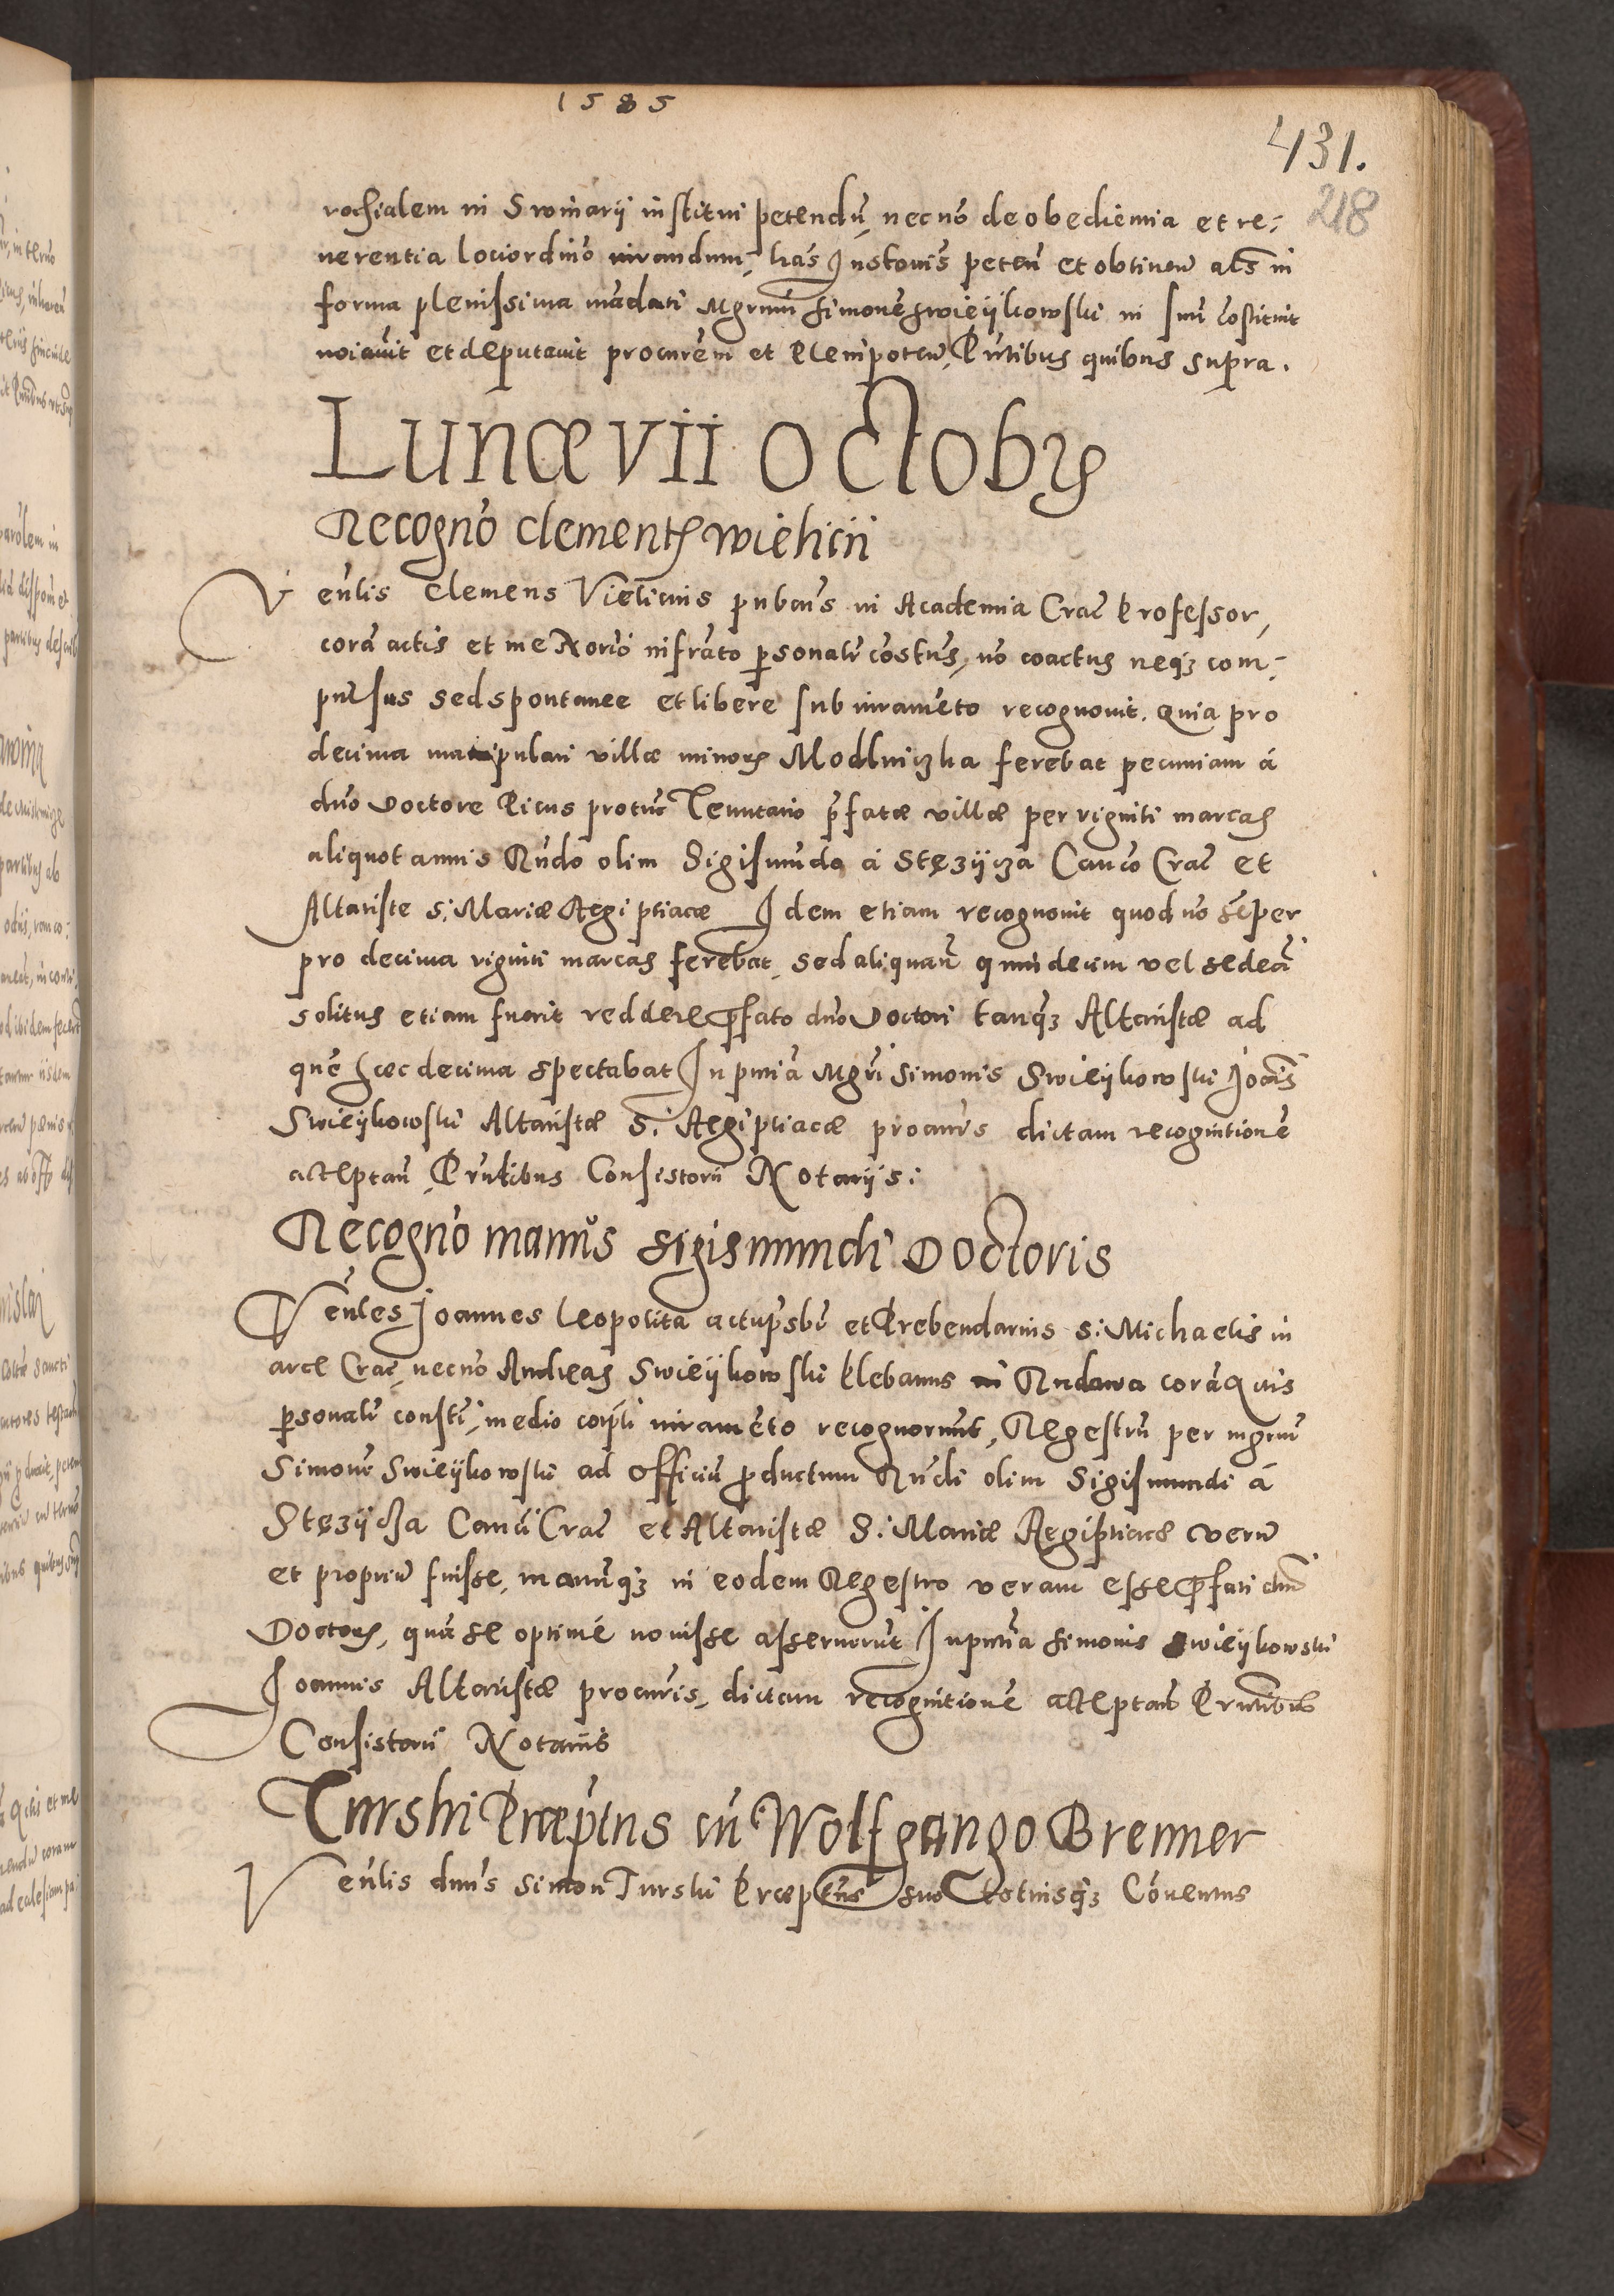 1585
431.
218
rochialem in Swinarÿ institui petendũ, necnõ de obedientia et re:
uerentia loci ordinō iurandum, hãs Instõnis peteñ et obtineñ als in
forma plenissima mãdati Mgrum Simonẽ Swieÿkowski in suũ cõstituit
noiauit et deputauit procurẽm et Plenipoteñ, Pñtibus quibus supra.
Lunæ VII Octobrꝭ
Recognō Clementꝭ Wielicii
Veñlis Clemens Vielicius pubcus in Academia Crac̃ Professor,
corã actis et me Notrio infrãto personaľr cõstus, nõ coactus neqꝫ com:
pulsus sed spontanee et libere sub iuramẽto recognouit. Quia pro
decima manipulari villæ minorꝭ Modlniczka ferebat pecuniam á
dño Doctore Picus protũc Tenutario p̃fatæ villæ per viginti marcas
aliquot annis Rñdo olim Sigismũdo á Stęzÿcza Canco Crac̃ et
Altaristæ S: Mariæ Aegiptiacæ Idem etiam recognouit quod nõ sẽper
pro decima viginti marcas ferebat, sed aliquañ quindecim vel sedecĩ
solitus etiam fuerit reddere p̃fato dño Doctori tanqꝫ Altaristæ ad
quẽ hæc decima spectabat In pñtia Mgri Simonis Swieÿkowski Joãis
Swieÿkowski Altaristæ S: Aegiptiacæ procuris dictam recognitionẽ
acceptañ, Pñtibus Consistorii Notarÿs:
Recognō manus Sigismundi Doctoris
Veñles Joannes Leopolita actup̃sbr et Prebendarius S: Michaelis in
arce Crac̃, necnõ Andreas Swieÿkowski Plebanus in Rudawa corã Actis
personaľr constĩ, medio corpľi iuramẽto recognorunt, Regestrũ per mgrum
Simonẽ Swieÿkowski ad Officiũ productum Rñdi olim Sigismundi á
Stęzÿcza Canci Crac̃ et Altaristæ S: Mariæ Aegiptiacæ verũ
et propriũ fuisse, manũqꝫ in eodem Regestro veram esse p̃fati dñi
Doctorꝭ, quã se optimé nouisse asseruerũt In pñtia Simonis Swieÿkowski
Joannis Altaristæ procuris, dictam recognitionẽ acceptañ Pñtibus
Consistorii Notariis
Turski Præp̃tus cũ Wolfgango Brenner
Veñlis dnus Simon Turski Præptus suo totiusqꝫ Cõuentus